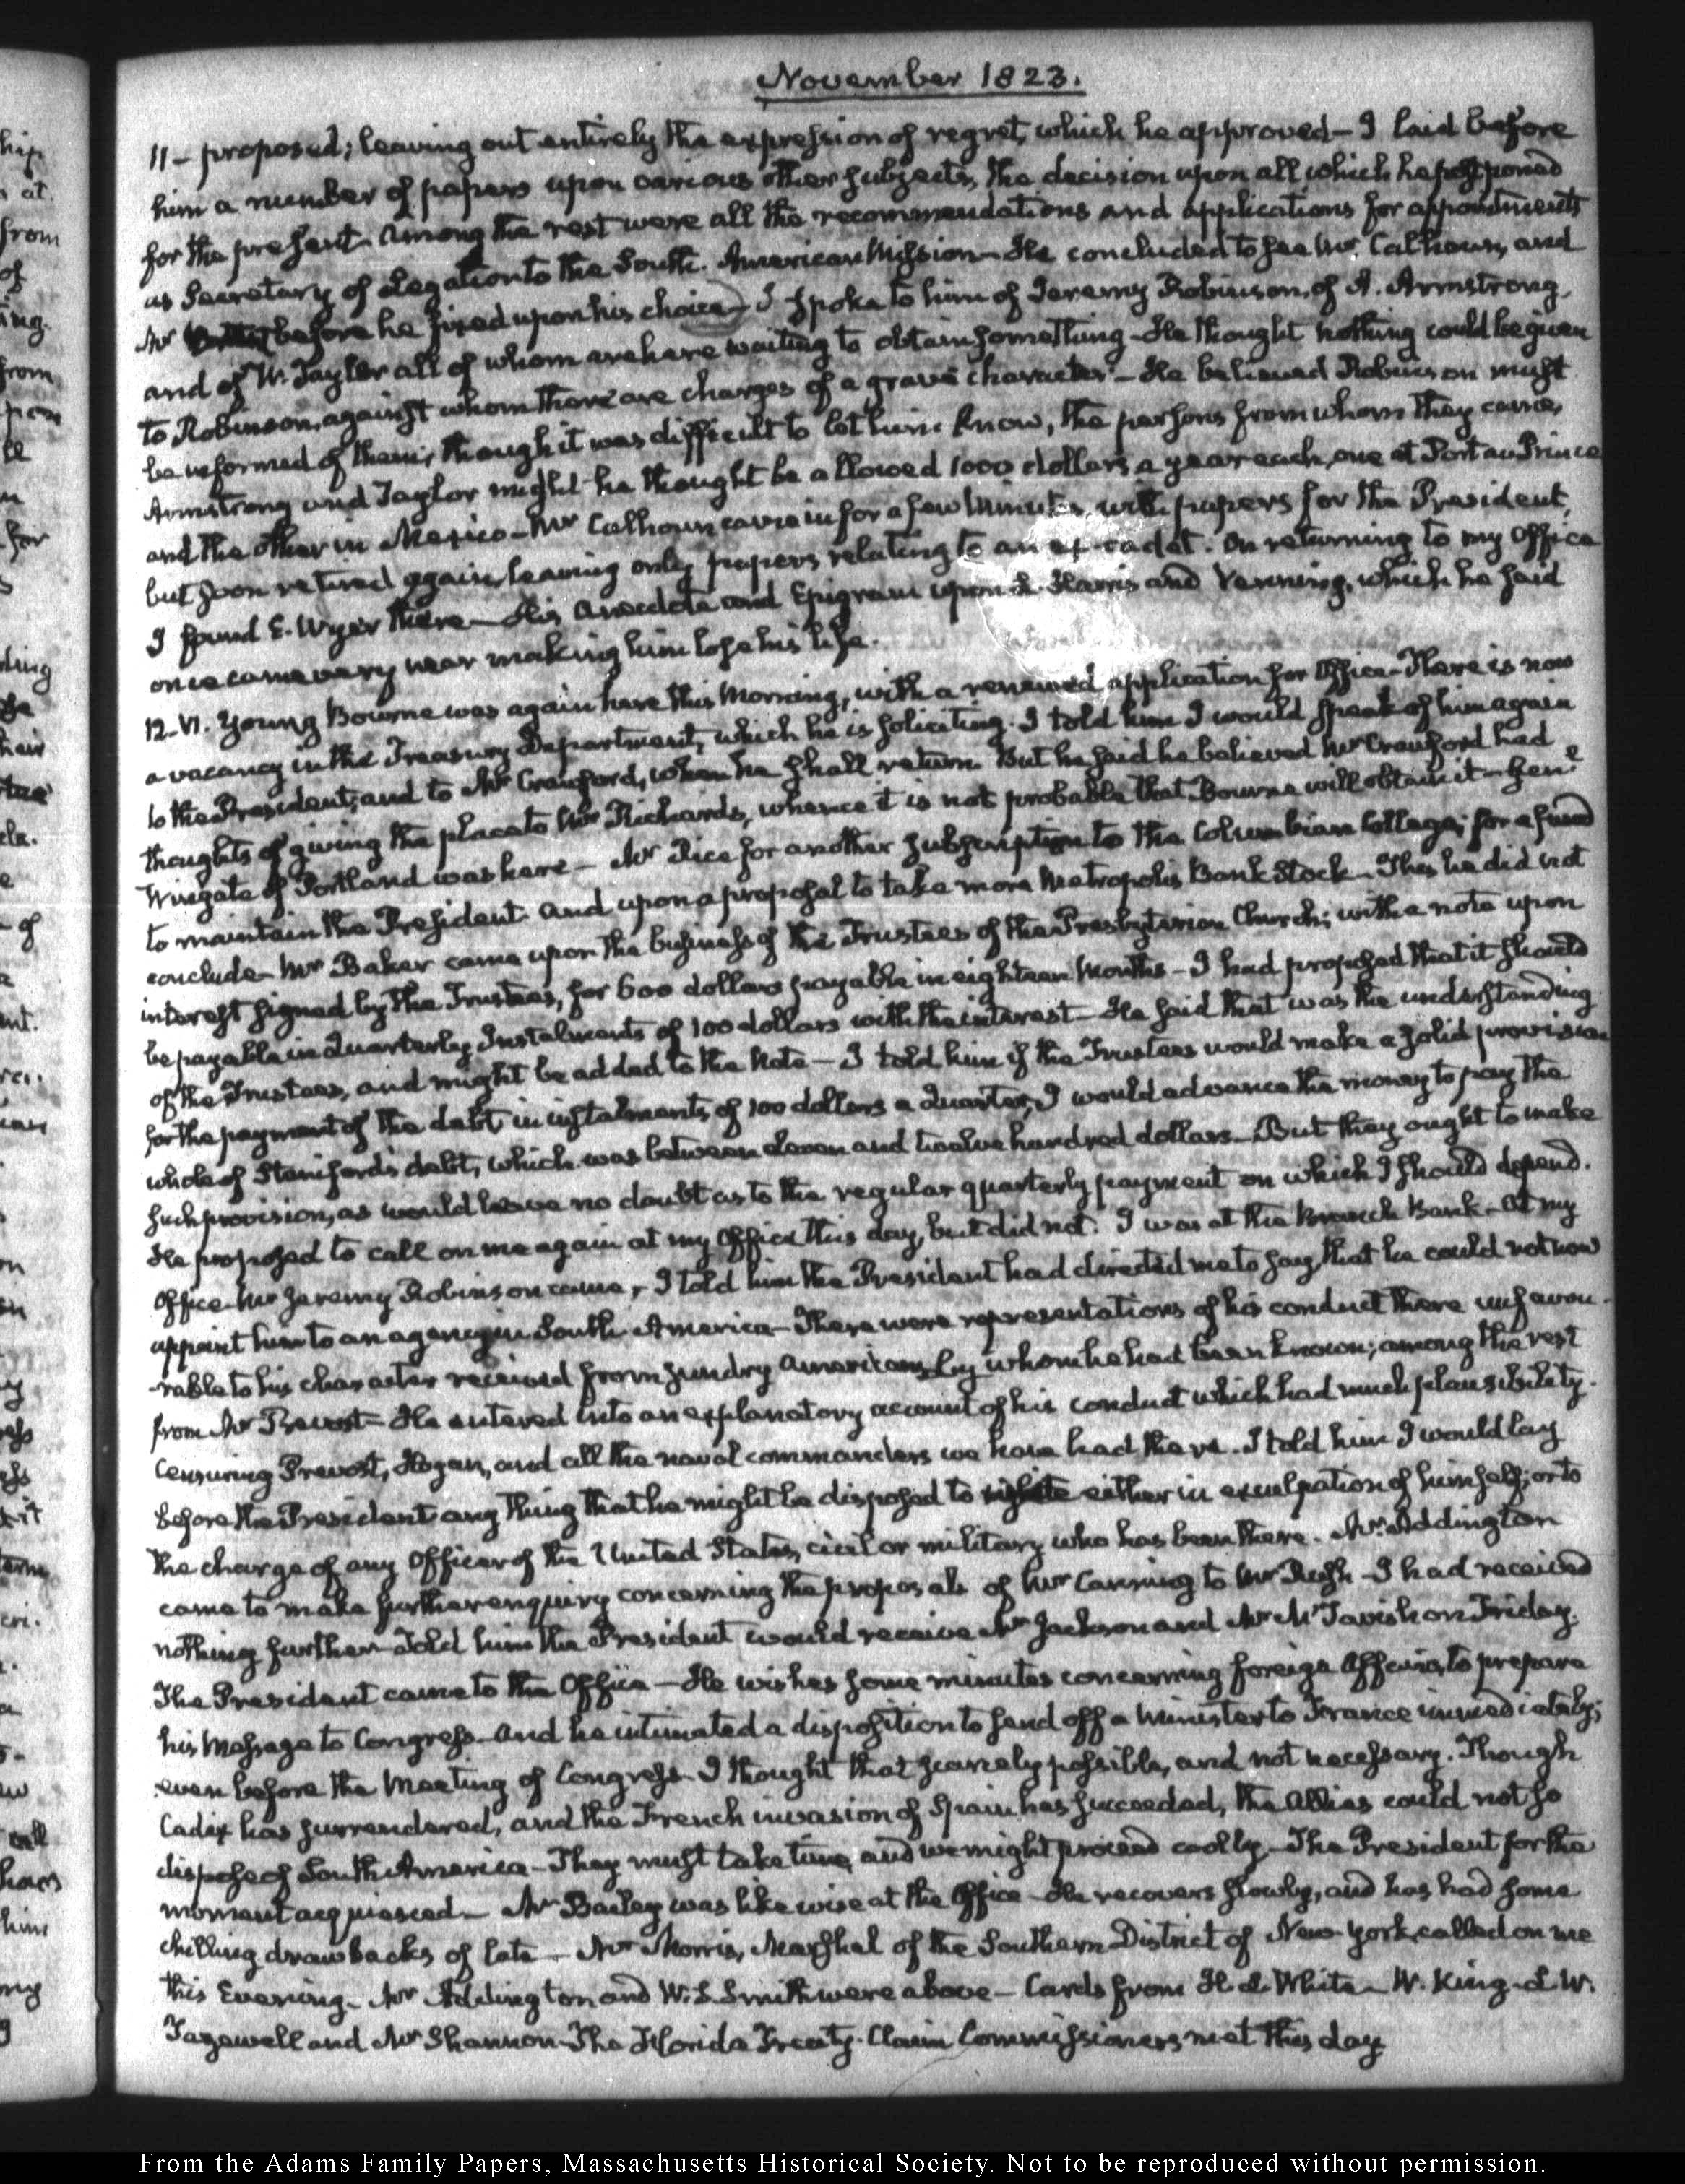 November 1823.
11 - proposed; leaving out entirely the expression of regret, which he approved - I laid before
him a number of papers upon various other subjects, the decision upon all which he postponed
for the present. Among the rest were all the recommendations and applications for appointments
as Secretary of Legation to the South. American Mission - He concluded to see Mr Calhoun, and
Mr before he fixed upon his choice - I spoke to him of Jeremy Robinson, of A. Armstrong,
and of W. Taylor all of whom are here waiting to obtain something - He thought nothing could be given
to Robinson, against whom there are charges of a grave character - He believed Robinson must
be informed of them, though it was difficult to let him know, the persons from whom they came,
Armstrong and Taylor might he thought be allowed 1000 dollars a year each, one at Port au Prince
and the other in Mexico - Mr Calhoun came in for a few minutes, with papers for the President,
but soon retired again, leaving only papers relating to an ex-cadet. On returning to my Office
I found E. Wyer there - His anecdote and Epigram upon L. Harris and Venning, which he said
once came very near making him lose his life.
12. VI. Young Bourne was again here this Morning, with a renewed application for Office - There is now
a vacancy in the Treasury Department, which he is soliciting. I told him I would speak of him again
to the President, and to Mr Crawford, when he shall return. But he said he believed Mr Crawford had
thoughts of giving the place to Mr Richards, whence it is not probable that Bourne will obtain it - Genl.
Wingate of Portland was here - Mr Rice for another subscription to the Columbian College; for a fund
to maintain the President. And upon a proposal to take more Metropolis Bank Stock - This he did not
conclude - Mr Baker came upon the business of the Trustees of the Presbyterian Church; with a note upon
interest signed by the Trustees, for 600 dollars payable in eighteen Months - I had proposed that it should
be payable in Quarterly Instalments of 100 dollars with the interest - He said that was the understanding
of the Trustees, and might be added to the Note - I told him if the Trustees would make a solid provision
for the payment of the debt in instalments of 100 dollars a Quarter, I would advance the money to pay the
whole of Staniford's debt, which was between eleven and twelve hundred dollars - But they ought to make
such provision, as would leave no doubt as to the regular quarterly payment on which I should depend.
He proposed to call on me again at my Office this day, but did not. I was at the Branch Bank - At my
Office Mr Jeremy Robinson came, I told him the President had directed me to say, that he could not now
appoint him to an agency in South America - There were representations of his conduct there unfavou-
-rable to his character received from sundry Americans by whom he had been known; among the rest
from Mr Prevost - He entered into an explanatory account of his conduct which had much plausibility.
Censuring Prevost, Hogan, and all the naval commanders we have had there. I told him I would lay
before the President any thing that he might be disposed to write either in exculpation of himself, or to
the charge of any Officer of the United States, civil or military who has been there. Mr Addington
came to make further enquiry concerning the proposals of Mr Canning to Mr Rush - I had received
nothing further - Told him the President would receive Mr Jackson and Mr McTavish on Friday.
The President came to the Office - He wishes some minutes concerning foreign Affairs, to prepare
his Message to Congress - and he intimated a disposition to send off a Minister to France immediately;
even before the Meeting of Congress - I thought that scarcely possible, and not necessary. Though
Cadiz has surrendered, and the French invasion of Spain has succeeded, the Allies could not so
dispose of South America - They must take time, and we might proceed coolly - The President for the
moment acquiesced - Mr Bailey was likewise at the Office - He recovers slowly, and has had some
chilling drawbacks of late - Mr Morris, Marshal of the Southern District of New-York, called on me
this Evening - Mr Addington and W. S. Smith were above - Cards from H. L. White - W. King - L W.
Tazewell and Mr Shannon - The Florida Treaty Claim Commissioners met this day
From the Adams Family Papers, Massachusetts Historical Society. Not to be reproduced without permission.